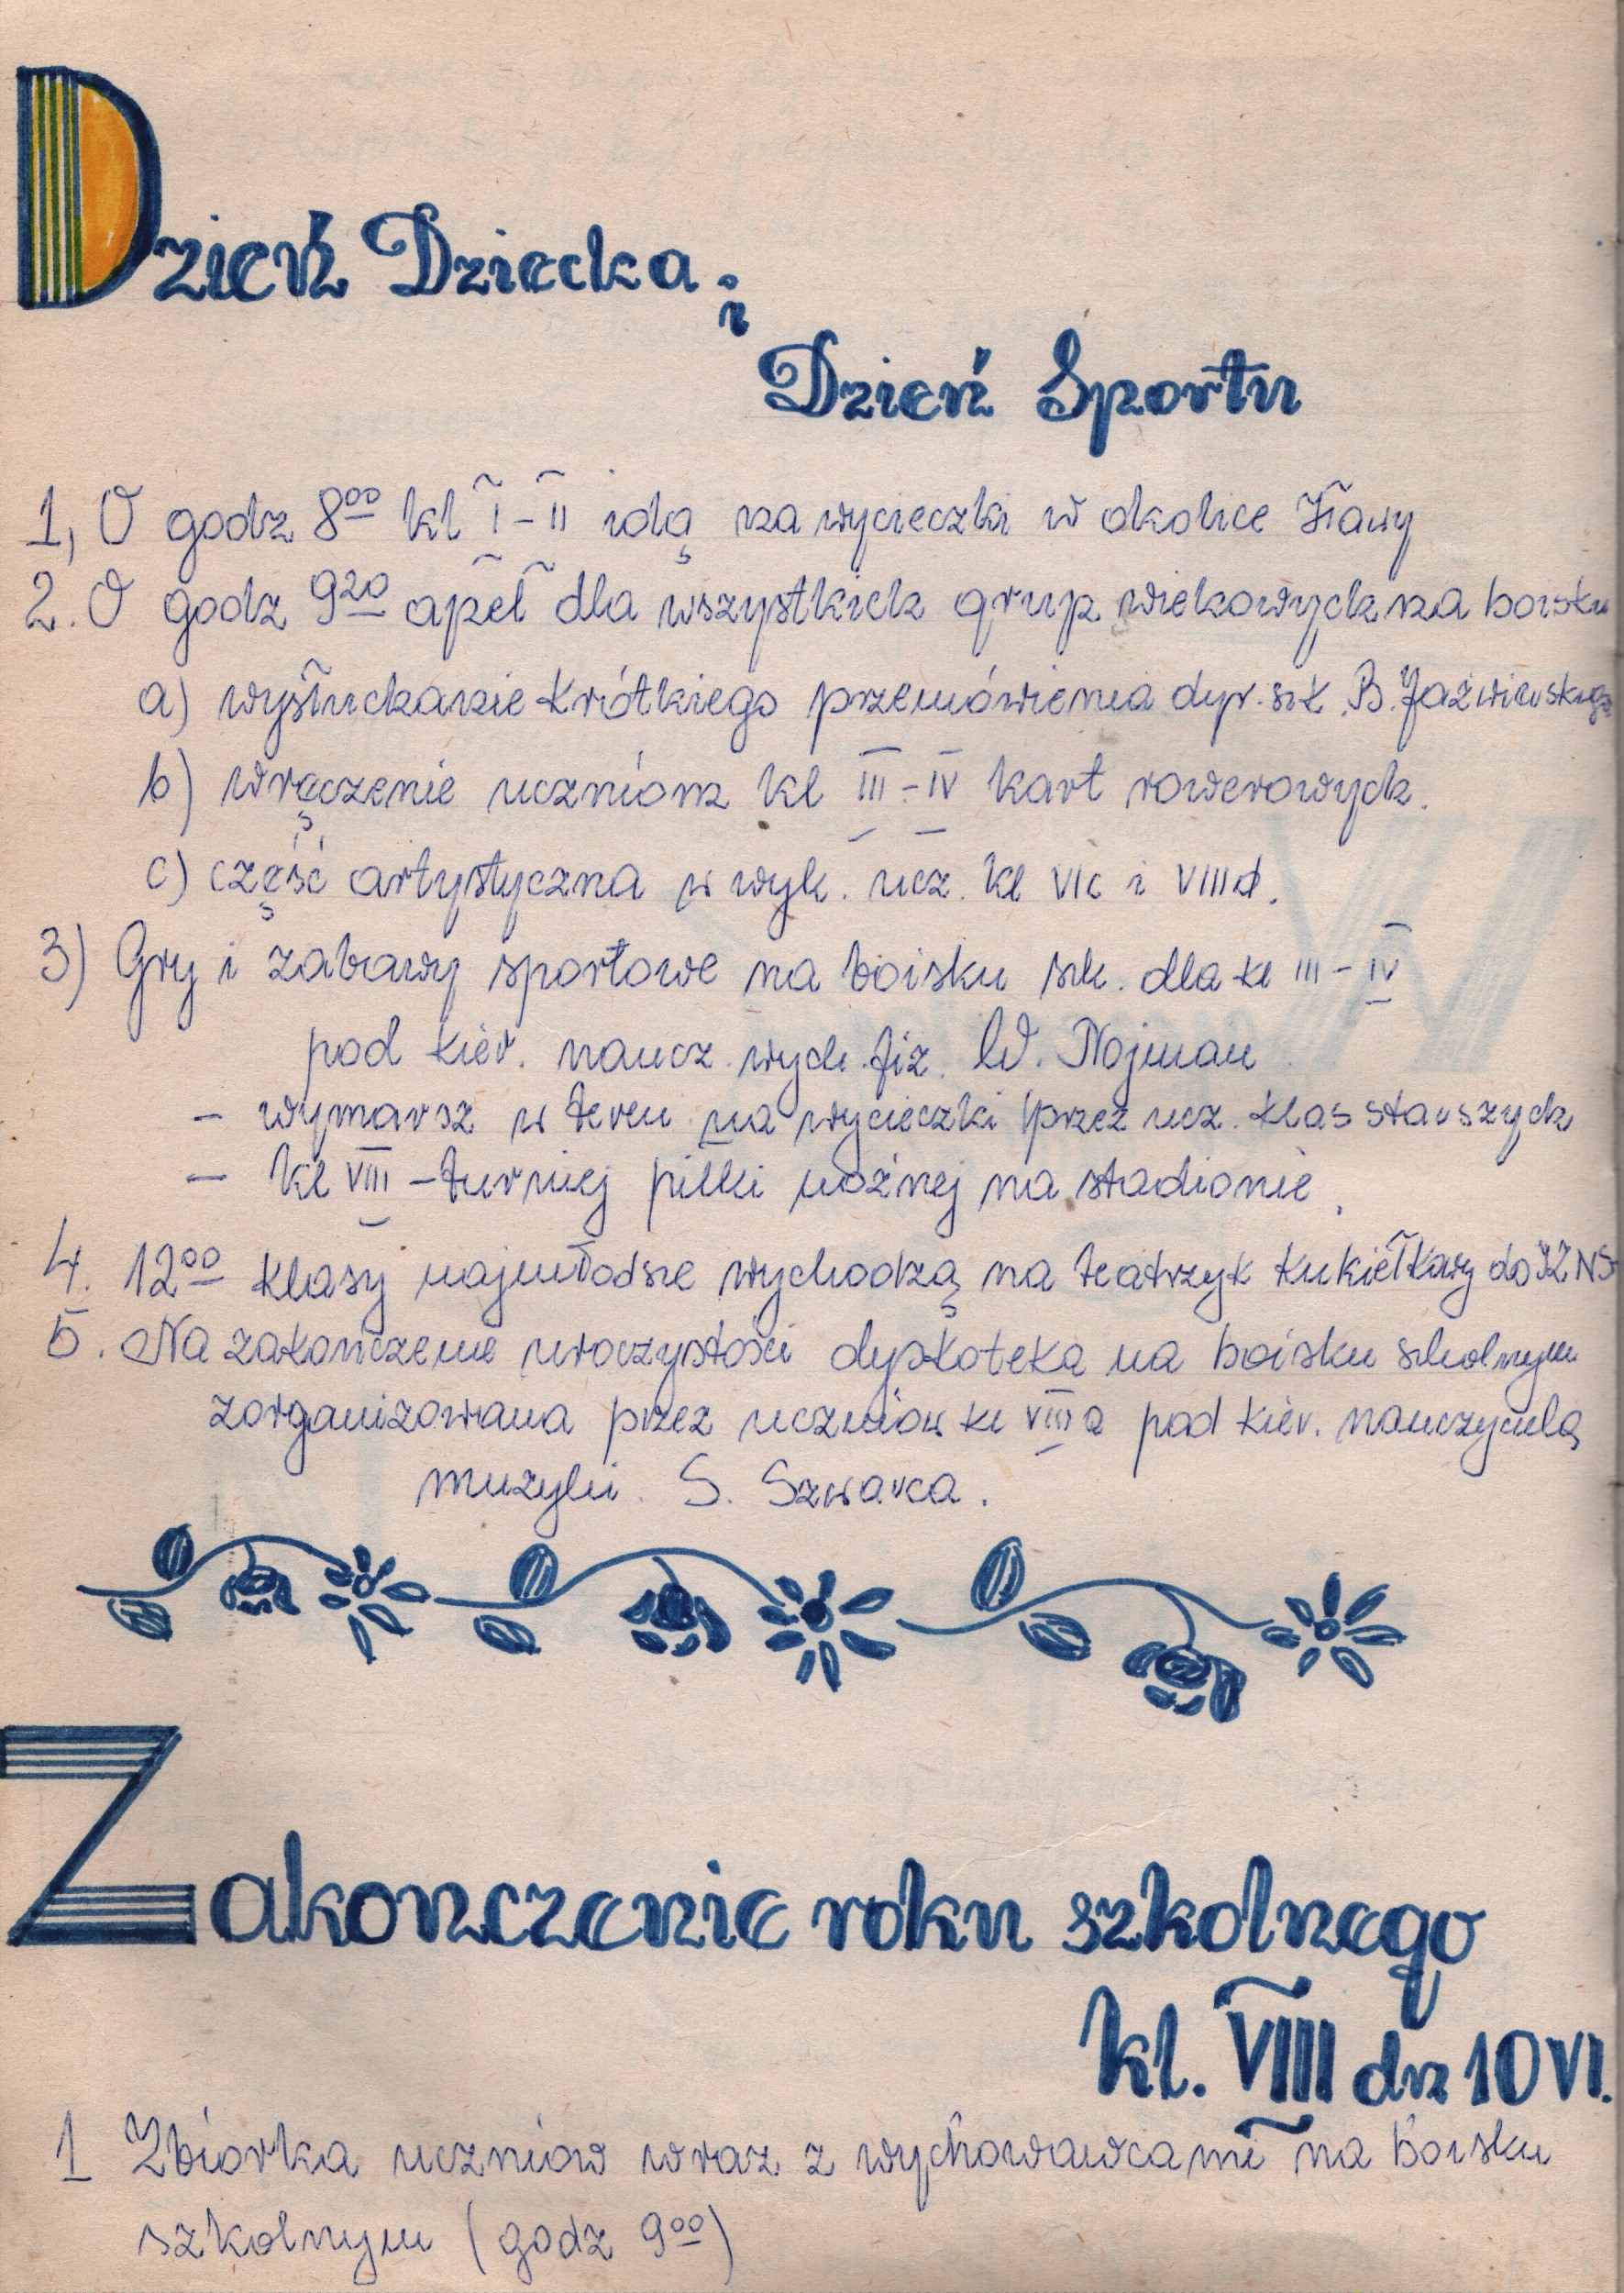 Dzień Dziecka i
Dzień Sportu
1, O godz 8⁰⁰ kl I-II idą na wycieczki w okolice Iławy
2. O godz 9²⁰ apel dla wszystkich grup wiekowych na boisku
a) wysłuchanie krótkiego przemówienia dyr. szk. B. Jaźwińskiego
b) wręczenie uczniom kl III-IV kart rowerowych.
c) część artystyczna w wyk. ucz. kl VIc i VIIId.
3) Gry i zabawy sportowe na boisku szk. dla kl III-IV
pod kier. naucz. wych. fiz. W. Nojman
- wymarsz w teren na wycieczki przez ucz. klas starszych
- kl VIII - turniej piłki nożnej na stadionie.
4. 12⁰⁰ klasy najmłodsze wychodzą na teatrzyk kukiełkowy do
5. Na zakończenie uroczystości dyskoteka na boisku szkolnym
zorganizowana przez uczniów kl VIIIa pod kier. nauczyciela
muzyki. S. Szwarca.
Zakonczenie roku szkolnego
kl. VIII dn 10 VI.
1 Zbiorka uczniow wraz z wychowawcami na boisku
szkolnym (godz 9⁰⁰)